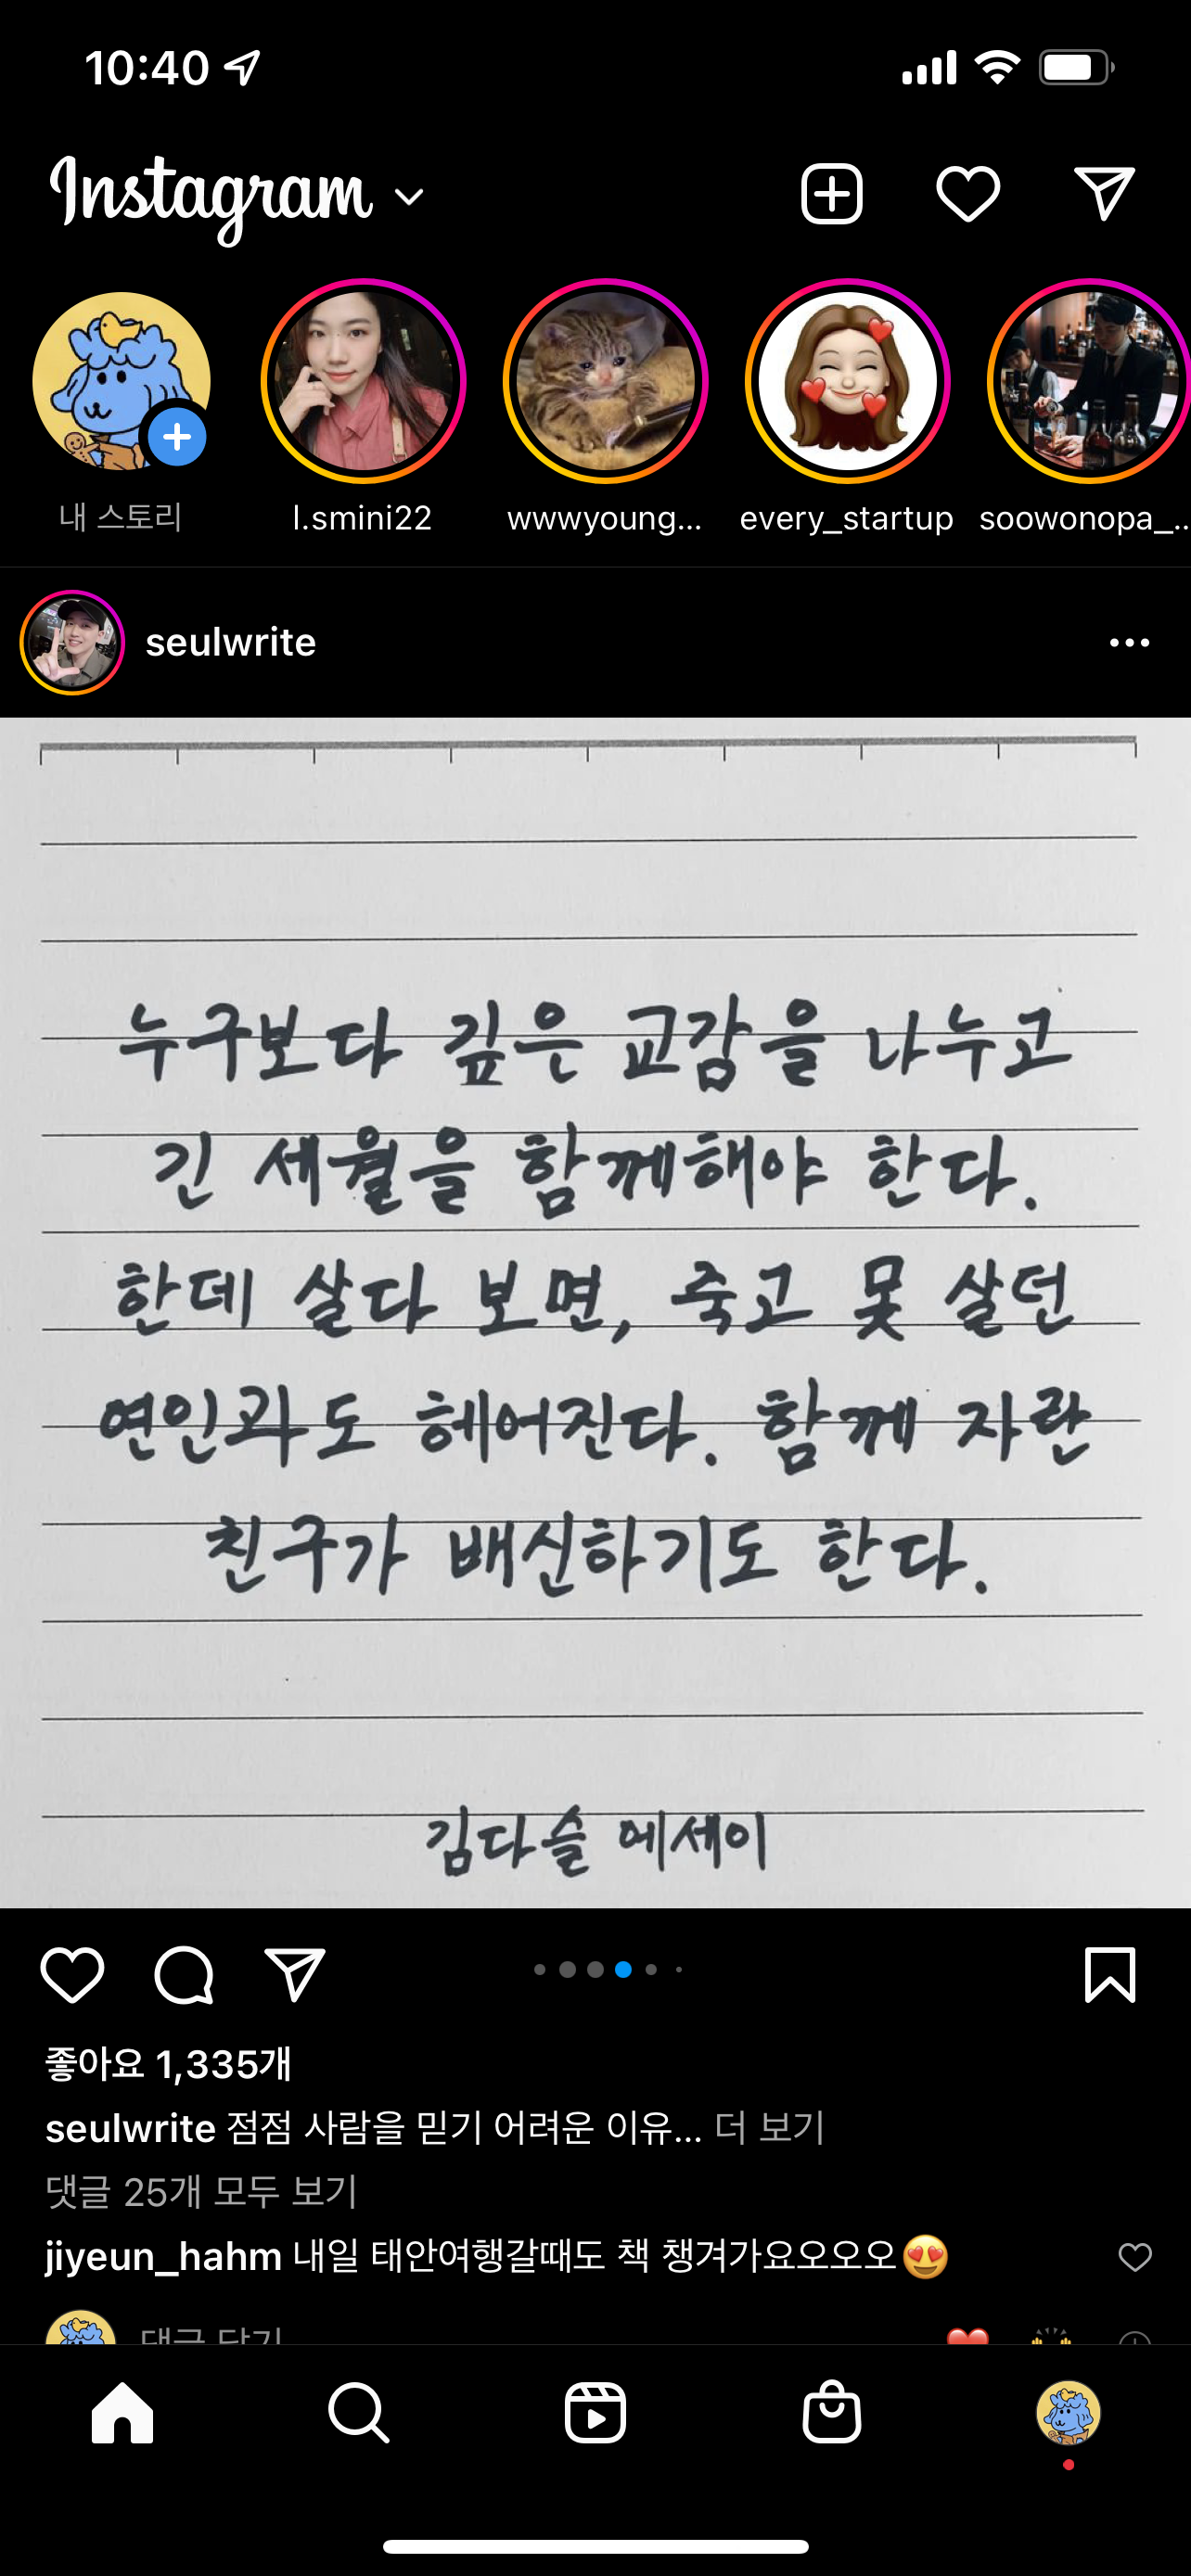 10:40
Instagram
내 스토리
l.smini22
wwwyoung...
every_startup
soowonopa_...
seulwrite
누구보다 깊은 교감을 나누고
긴 세월을 함께해야 한다.
한데 살다 보면, 죽고 못 살던
연인과도 헤어진다. 함께 자란
친구가 배신하기도 한다.
김다슬 에세이
좋아요 1,335개
seulwrite 점점 사람을 믿기 어려운 이유... 더 보기
댓글 25개 모두 보기
jiyeun_hahm 내일 태안여행갈때도 책 챙겨가요오오오😍
댓글 달기